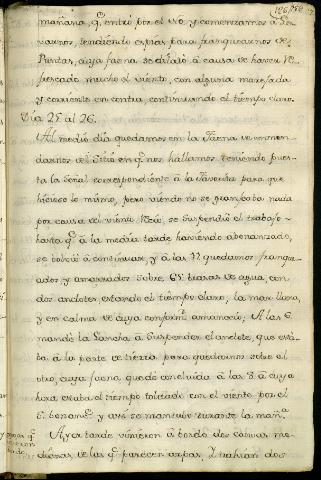 mañana, q.^e entró por el NO. y comenzamos a Le-
varnos, tendiendo espias para franquearnos de
Puntas, cuya faena se dilató à causa de haver re-
frescado mucho el viento, con alguna marejada
y corriente en contra, continuando el tiempo claro.
Dia 25 al 26.
Al medio dia quedamos en la faena de enmen-
darnos del Sitio en q.^e nos hallamos teniendo pues-
ta la señal correspondiente à la para que
hiciese lo mismo, pero viendo no se granjeaba nada
por causa del viento se suspendió el trabajo
hasta q.^e à la media tarde haviendo abonanzado,
se bolvió à continuar, y à las 12 quedamos franque-
ados y amarrados sobre brazas de agua, con
dos anclotes estando el tiempo claro, la mar llana,
y en calma de cuya conform.^d amanecio; A las 6
mandé la Lancha à suspender el anclote, que esta-
ba à la parte de tierra para quedarnos sobre el
otro, cuya faena quedó concluida à las 8 à cuya
hora estaba el tiempo toldado con el viento por el
S. bonanc.^e y asi se mantubo durante la mañ.^a
Ayer tarde vinieron à bordo dos canoas me-
dianas, de las q.^e parecen arpas, y trahian dos